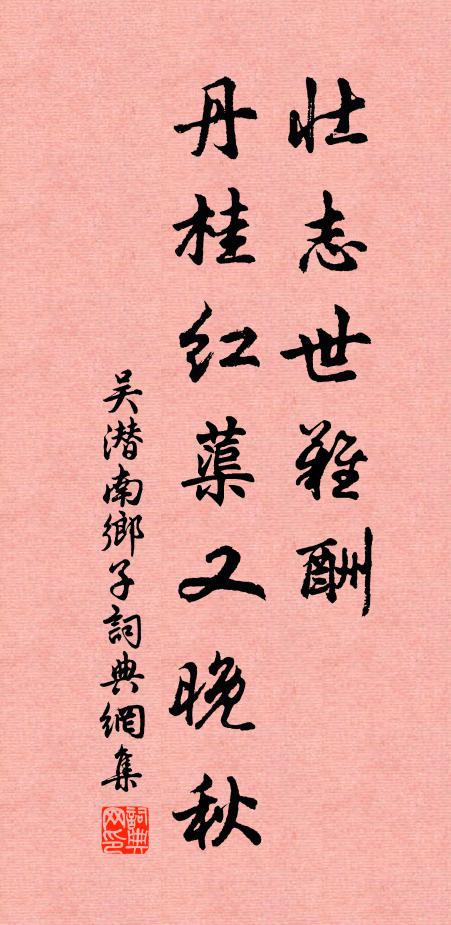 壮志世難酬
丹桂红蕖又晚秋
吴潜南鄉子詞典網集
詞典网印